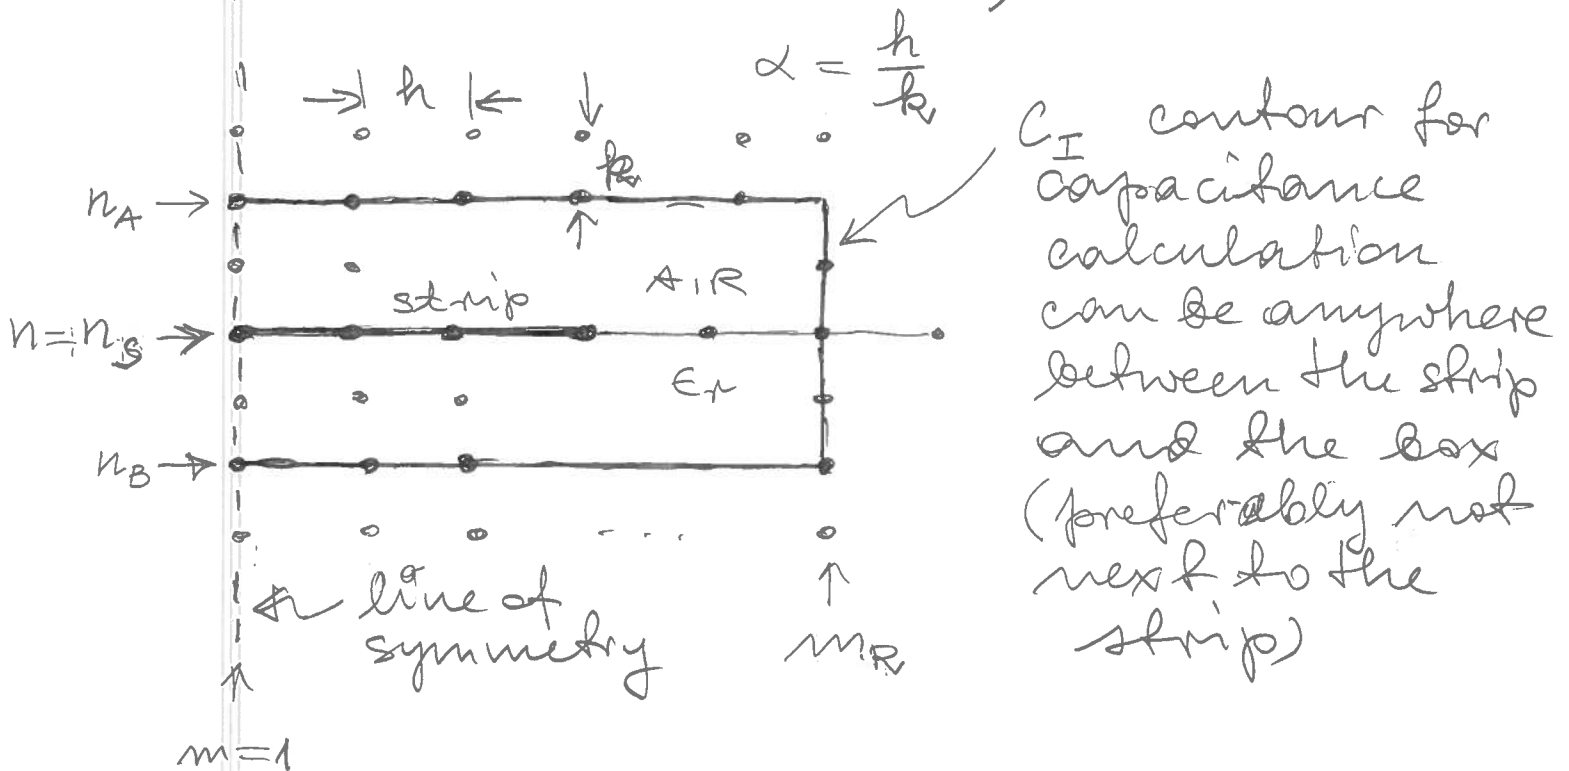 α = h/k
h
k
n_A →
AIR
strip
n = n_S →
ϵ_r
n_B →
line of
symmetry
m_R
m = 1
C_I contour for
capacitance
calculation
can be anywhere
between the strip
and the box
(preferably not
next to the
strip)